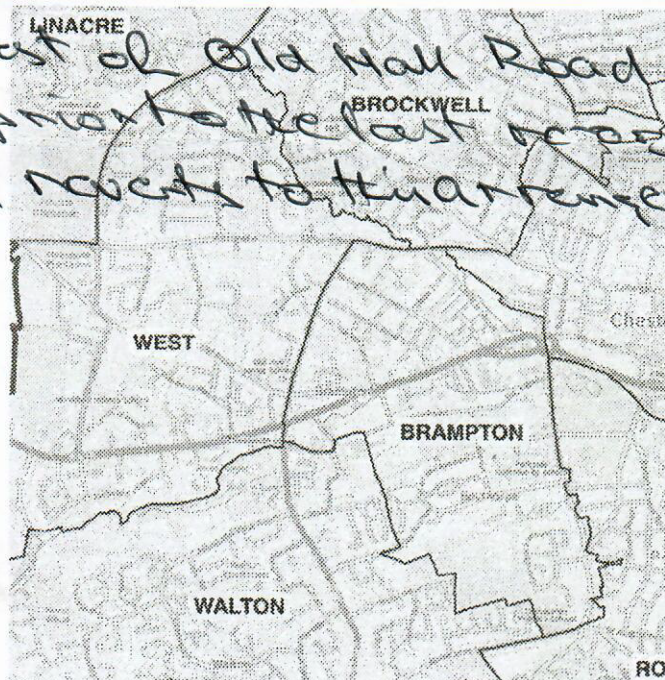 LINACRE
ast of Old Hall Road
BROCKWELL
prior to the last
reverts to this arrange
WEST
Chest
BRAMPTON
WALTON
RO